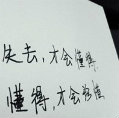 失去，才会懂得
懂得，才会珍惜